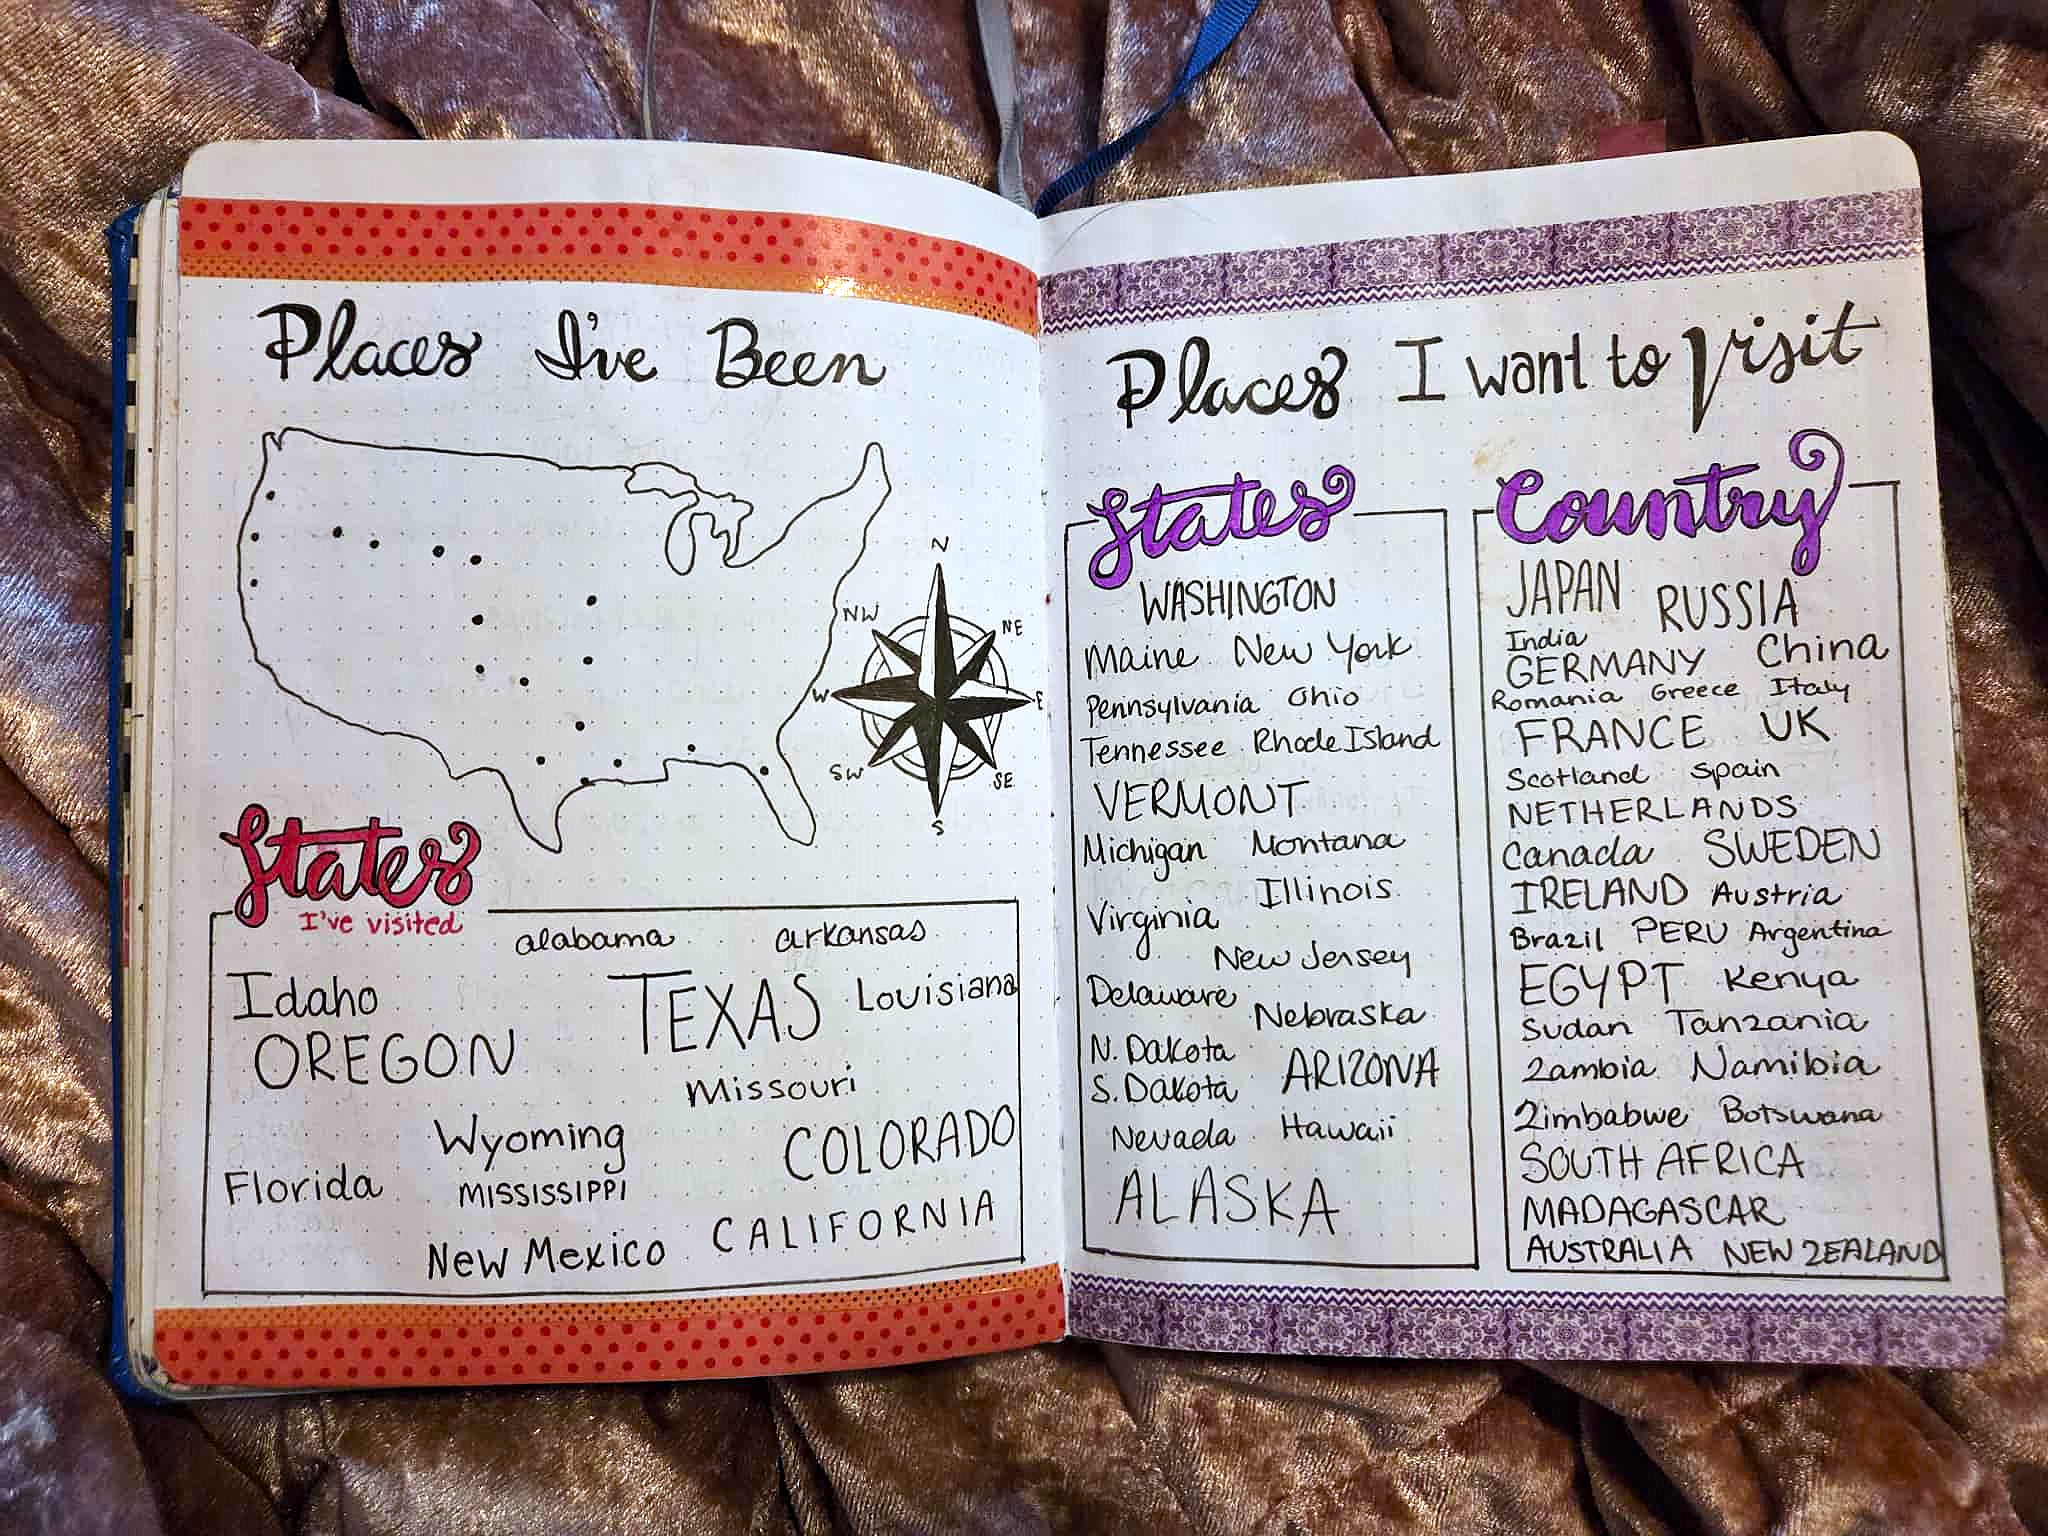 Places I've Been
N
NW NE
W E
SW SE
S
States
I've visited
alabama arkansas
Idaho TEXAS Louisiana
OREGON
Missouri
Wyoming COLORADO
Florida MISSISSIPPI
New Mexico CALIFORNIA
Places I want to Visit
States
WASHINGTON
Maine New York
Pennsylvania Ohio
Tennessee Rhode Island
VERMONT
Michigan Montana
Illinois
Virginia
New Jersey
Delaware
Nebraska
N. Dakota ARIZONA
S. Dakota
Nevada Hawaii
ALASKA
Country
JAPAN RUSSIA
India
GERMANY China
Romania Greece Italy
FRANCE UK
Scotland Spain
NETHERLANDS
Canada SWEDEN
IRELAND Austria
Brazil PERU Argentina
EGYPT Kenya
Sudan Tanzania
Zambia Namibia
Zimbabwe Botswana
SOUTH AFRICA
MADAGASCAR
AUSTRALIA NEW ZEALAND